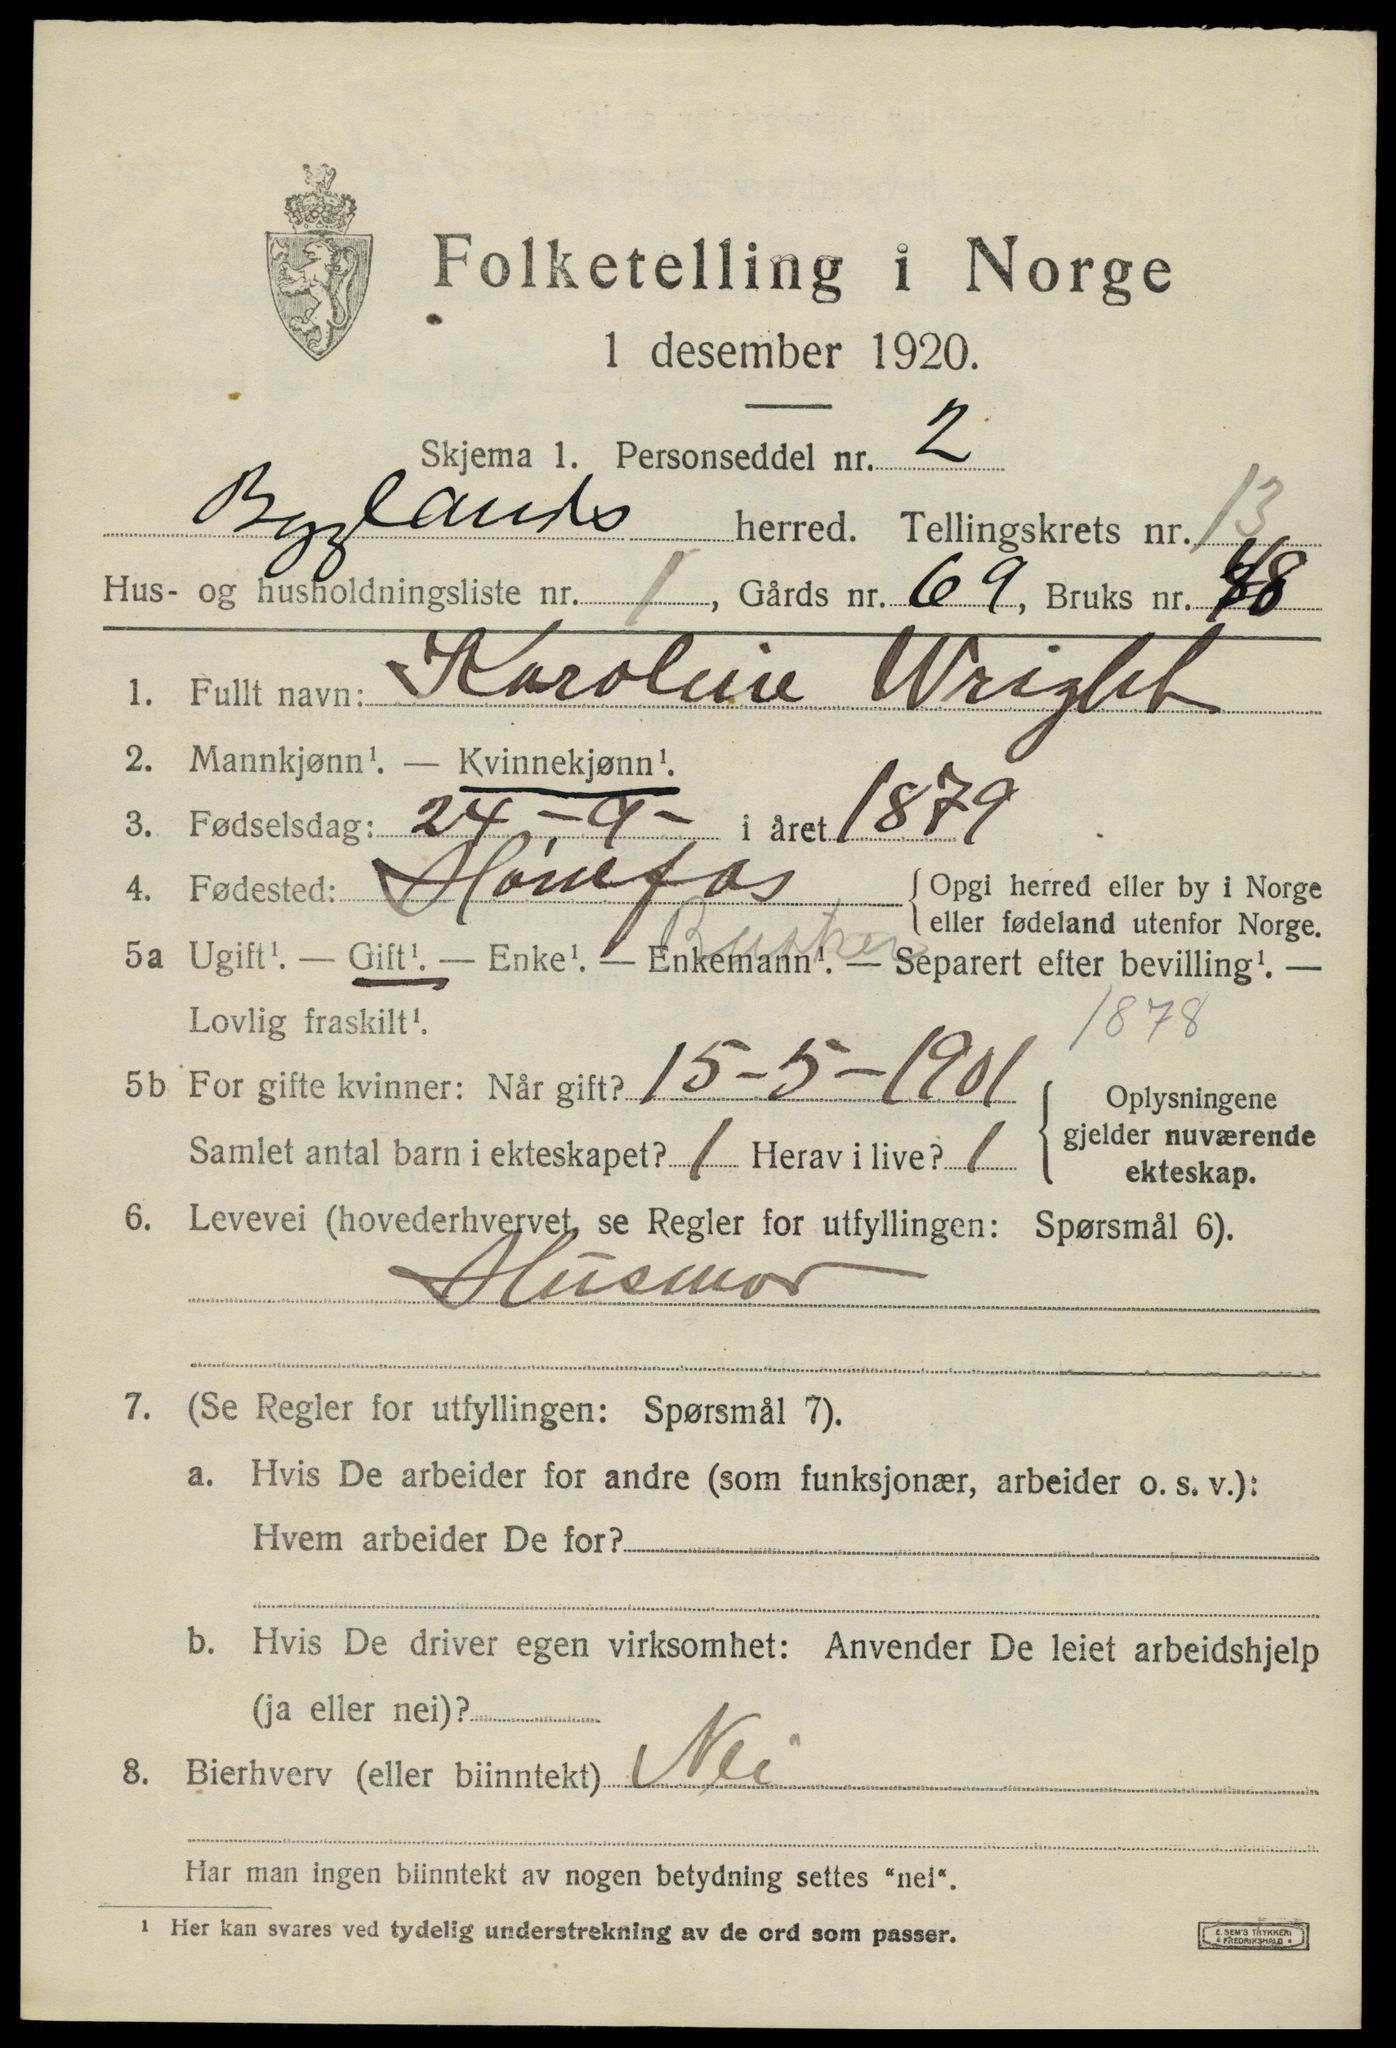 Folketelling i Norge
1 desember 1920.
Skjema 1. Personseddel nr. 2
Byglands herred. Tellingskrets nr. 13
Hus- og husholdningsliste nr. 1, Gårds nr. 69, Bruks nr. 48
1. Fullt navn: Karoline Wright
2. Mannkjønn¹. — Kvinnekjønn¹.
3. Fødselsdag: 24 - 9 - i året 1879
4. Fødested: Hønefos { Opgi herred eller by i Norge
eller fødeland utenfor Norge.
Busker
5a Ugift¹. — Gift¹. — Enke¹. — Enkemann¹. — Separert efter bevilling¹. —
Lovlig fraskilt¹. 1878
5b For gifte kvinner: Når gift? 15-5-1901
Samlet antal barn i ekteskapet? 1 Herav i live? 1
{ Oplysningene
gjelder nuværende
ekteskap.
6. Levevei (hovederhvervet, se Regler for utfyllingen: Spørsmål 6).
Husmor
7. (Se Regler for utfyllingen: Spørsmål 7).
a. Hvis De arbeider for andre (som funksjonær, arbeider o. s. v.):
Hvem arbeider De for?
b. Hvis De driver egen virksomhet: Anvender De leiet arbeidshjelp
(ja eller nei)?
8. Bierhverv (eller biinntekt) Nei
Har man ingen biinntekt av nogen betydning settes "nei".
¹ Her kan svares ved tydelig understrekning av de ord som passer.
E. SEM'S TRYKKERI
FREDRIKSHALD